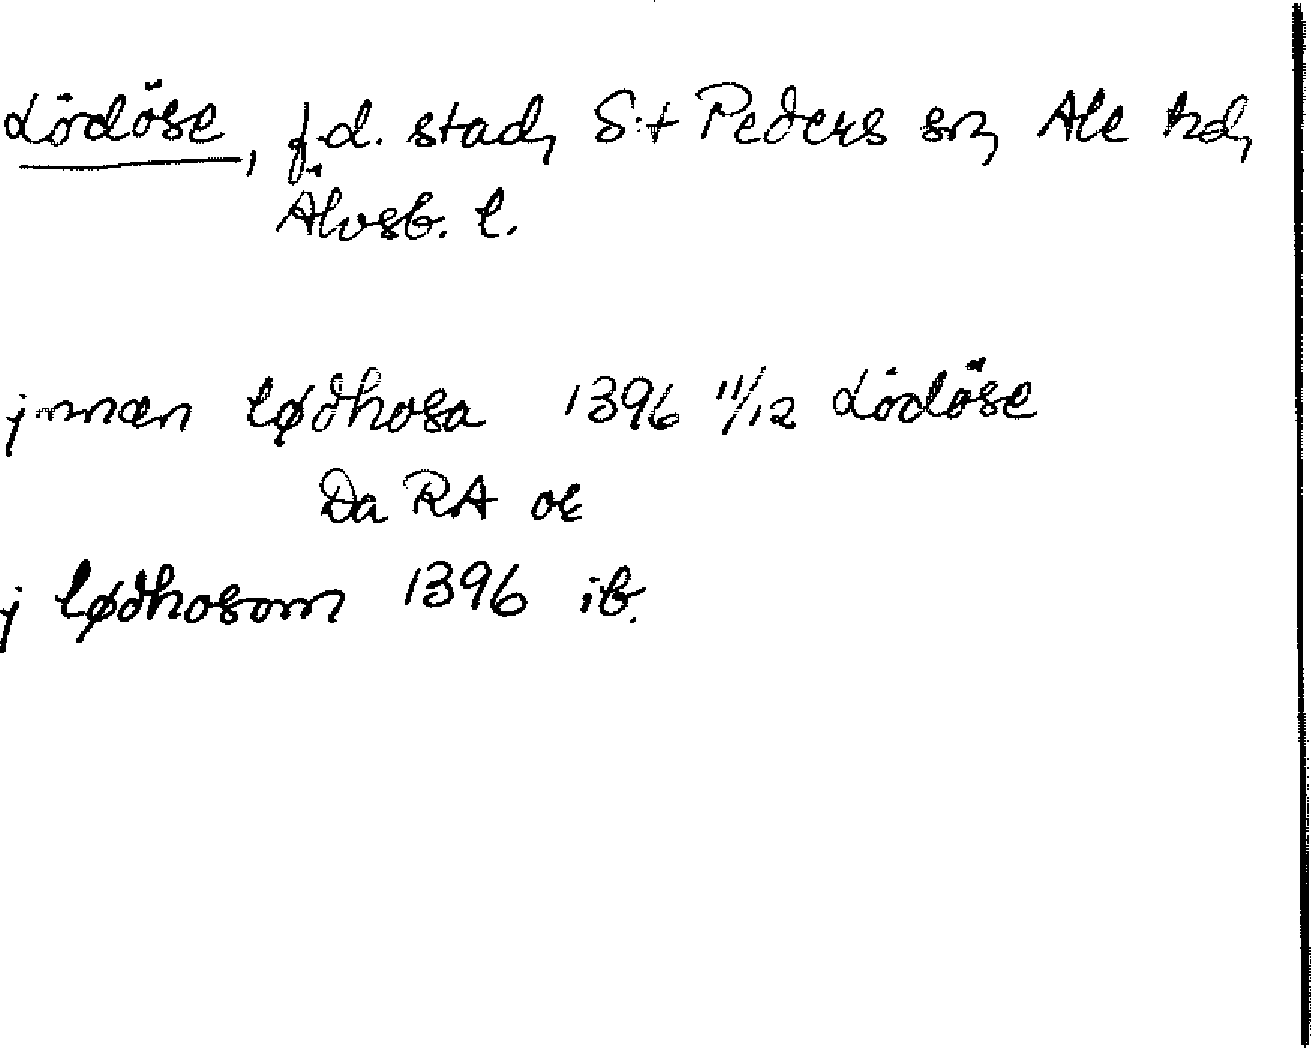 Lödöse, f.d. stad, S:t Peders sn, Ale hd,
Älvsb. l.
jnnæn løðhosa 1396 11/12 Lödöse
Da RA oe
j løðhosom 1396 ib.